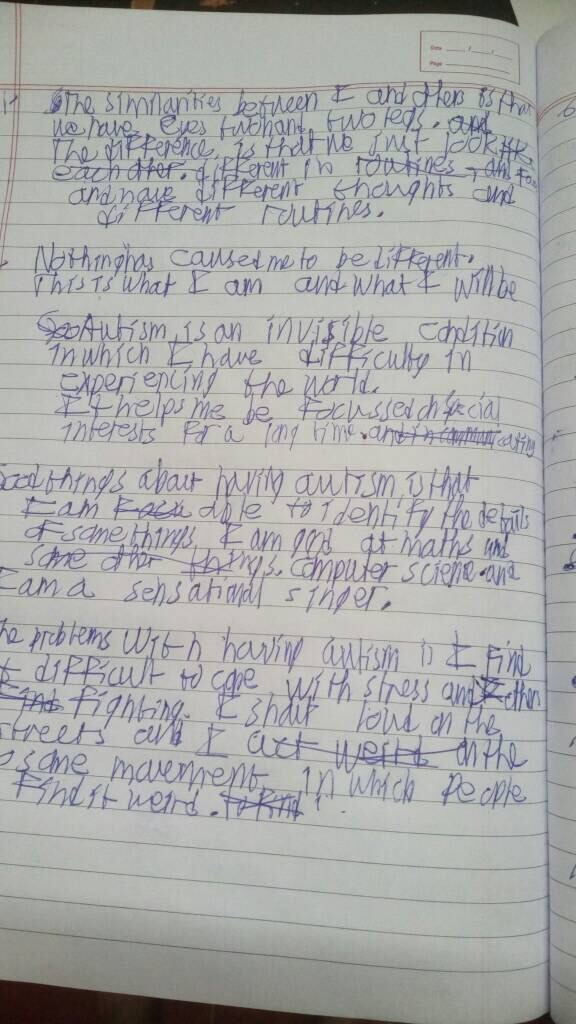 Date
Page
The similarities between I and others is that
we have eyes two hand two legs. and
The difference, is that we just look like
each other. different in routines, and
and have different thoughts and
different routines.
Nothing has caused me to be different.
This is what I am and what I will be
Autism is an invisible condition
in which I have difficulty in
experiencing the world.
It helps me be focussed on special
interests for a long time. and in
Good things about having autism is that
I am able to identify the details
of some things. I am good at maths and
some other things. computer science. and
I am a sensational singer.
The problems with having autism is I find
it difficult to cope with stress and others
find fighting. I shout loud on the
streets and I act weird on the
do some movement in which people
find it weird. to find